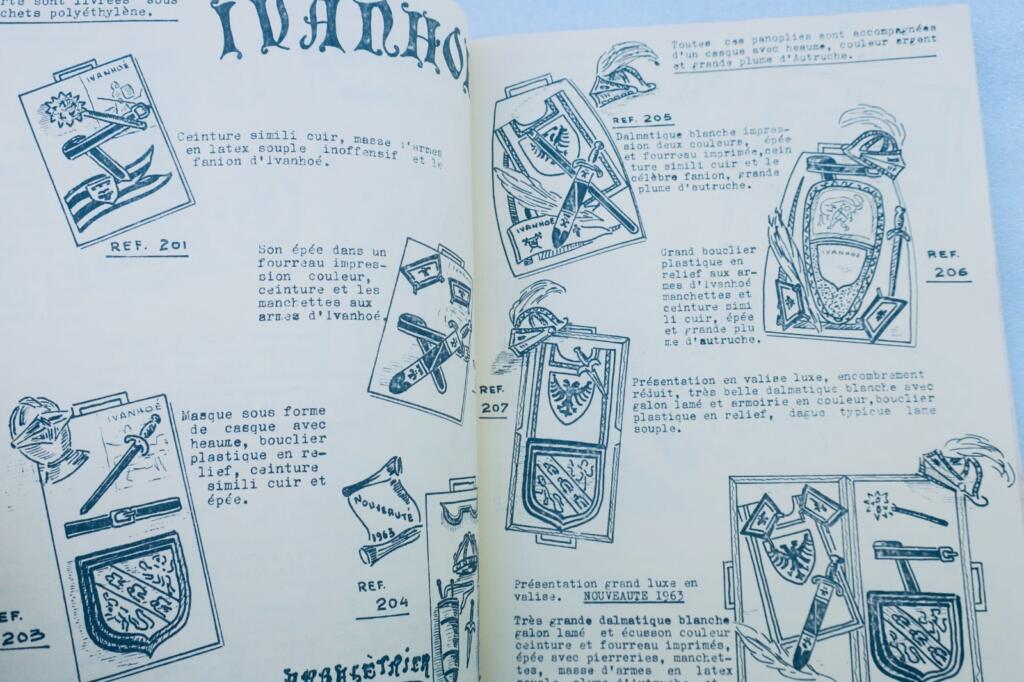 sont livrées sous
chets polyéthylène.
IVANHO
IVANHOË
Ceinture simili cuir, masse d'armes
en latex souple inoffensif et le
fanion d'Ivanhoé.
REF. 201
Son épée dans un
fourreau impres-
sion couleur,
ceinture et les
manchettes aux
armes d'Ivanhoé.
IVANHOË
Masque sous forme
de casque avec
heaume, bouclier
plastique en re-
lief, ceinture
simili cuir et
épée.
REF.
203
NOUVEAUTÉ
1963
REF.
204
ARBALÈTRIER
Toutes ces panoplies sont accompagnées
d'un casque avec heaume, couleur argent
et grande plume d'Autruche.
REF. 205
Dalmatique blanche impres-
sion deux couleurs, épée
et fourreau imprimée,cein
ture simili cuir et le
célèbre fanion, grande
plume d'autruche.
IVANHOË
Grand bouclier
plastique en
relief aux ar-
mes d'Ivanhoé
manchettes et
ceinture simi
li cuir, épée
et grande plu
me d'autruche.
IVANHOË
REF.
206
REF.
207
Présentation en valise luxe, encombrement
réduit, très belle dalmatique blanche avec
galon lamé et armoirie en couleur,bouclier
plastique en relief, dague typique lame
souple.
Présentation grand luxe en
valise. NOUVEAUTE 1963
Très grande dalmatique blanche
galon lamé et écusson couleur
ceinture et fourreau imprimés,
épée avec pierreries, manchet-
tes, masse d'armes en latex
souple, plume d'autruche et